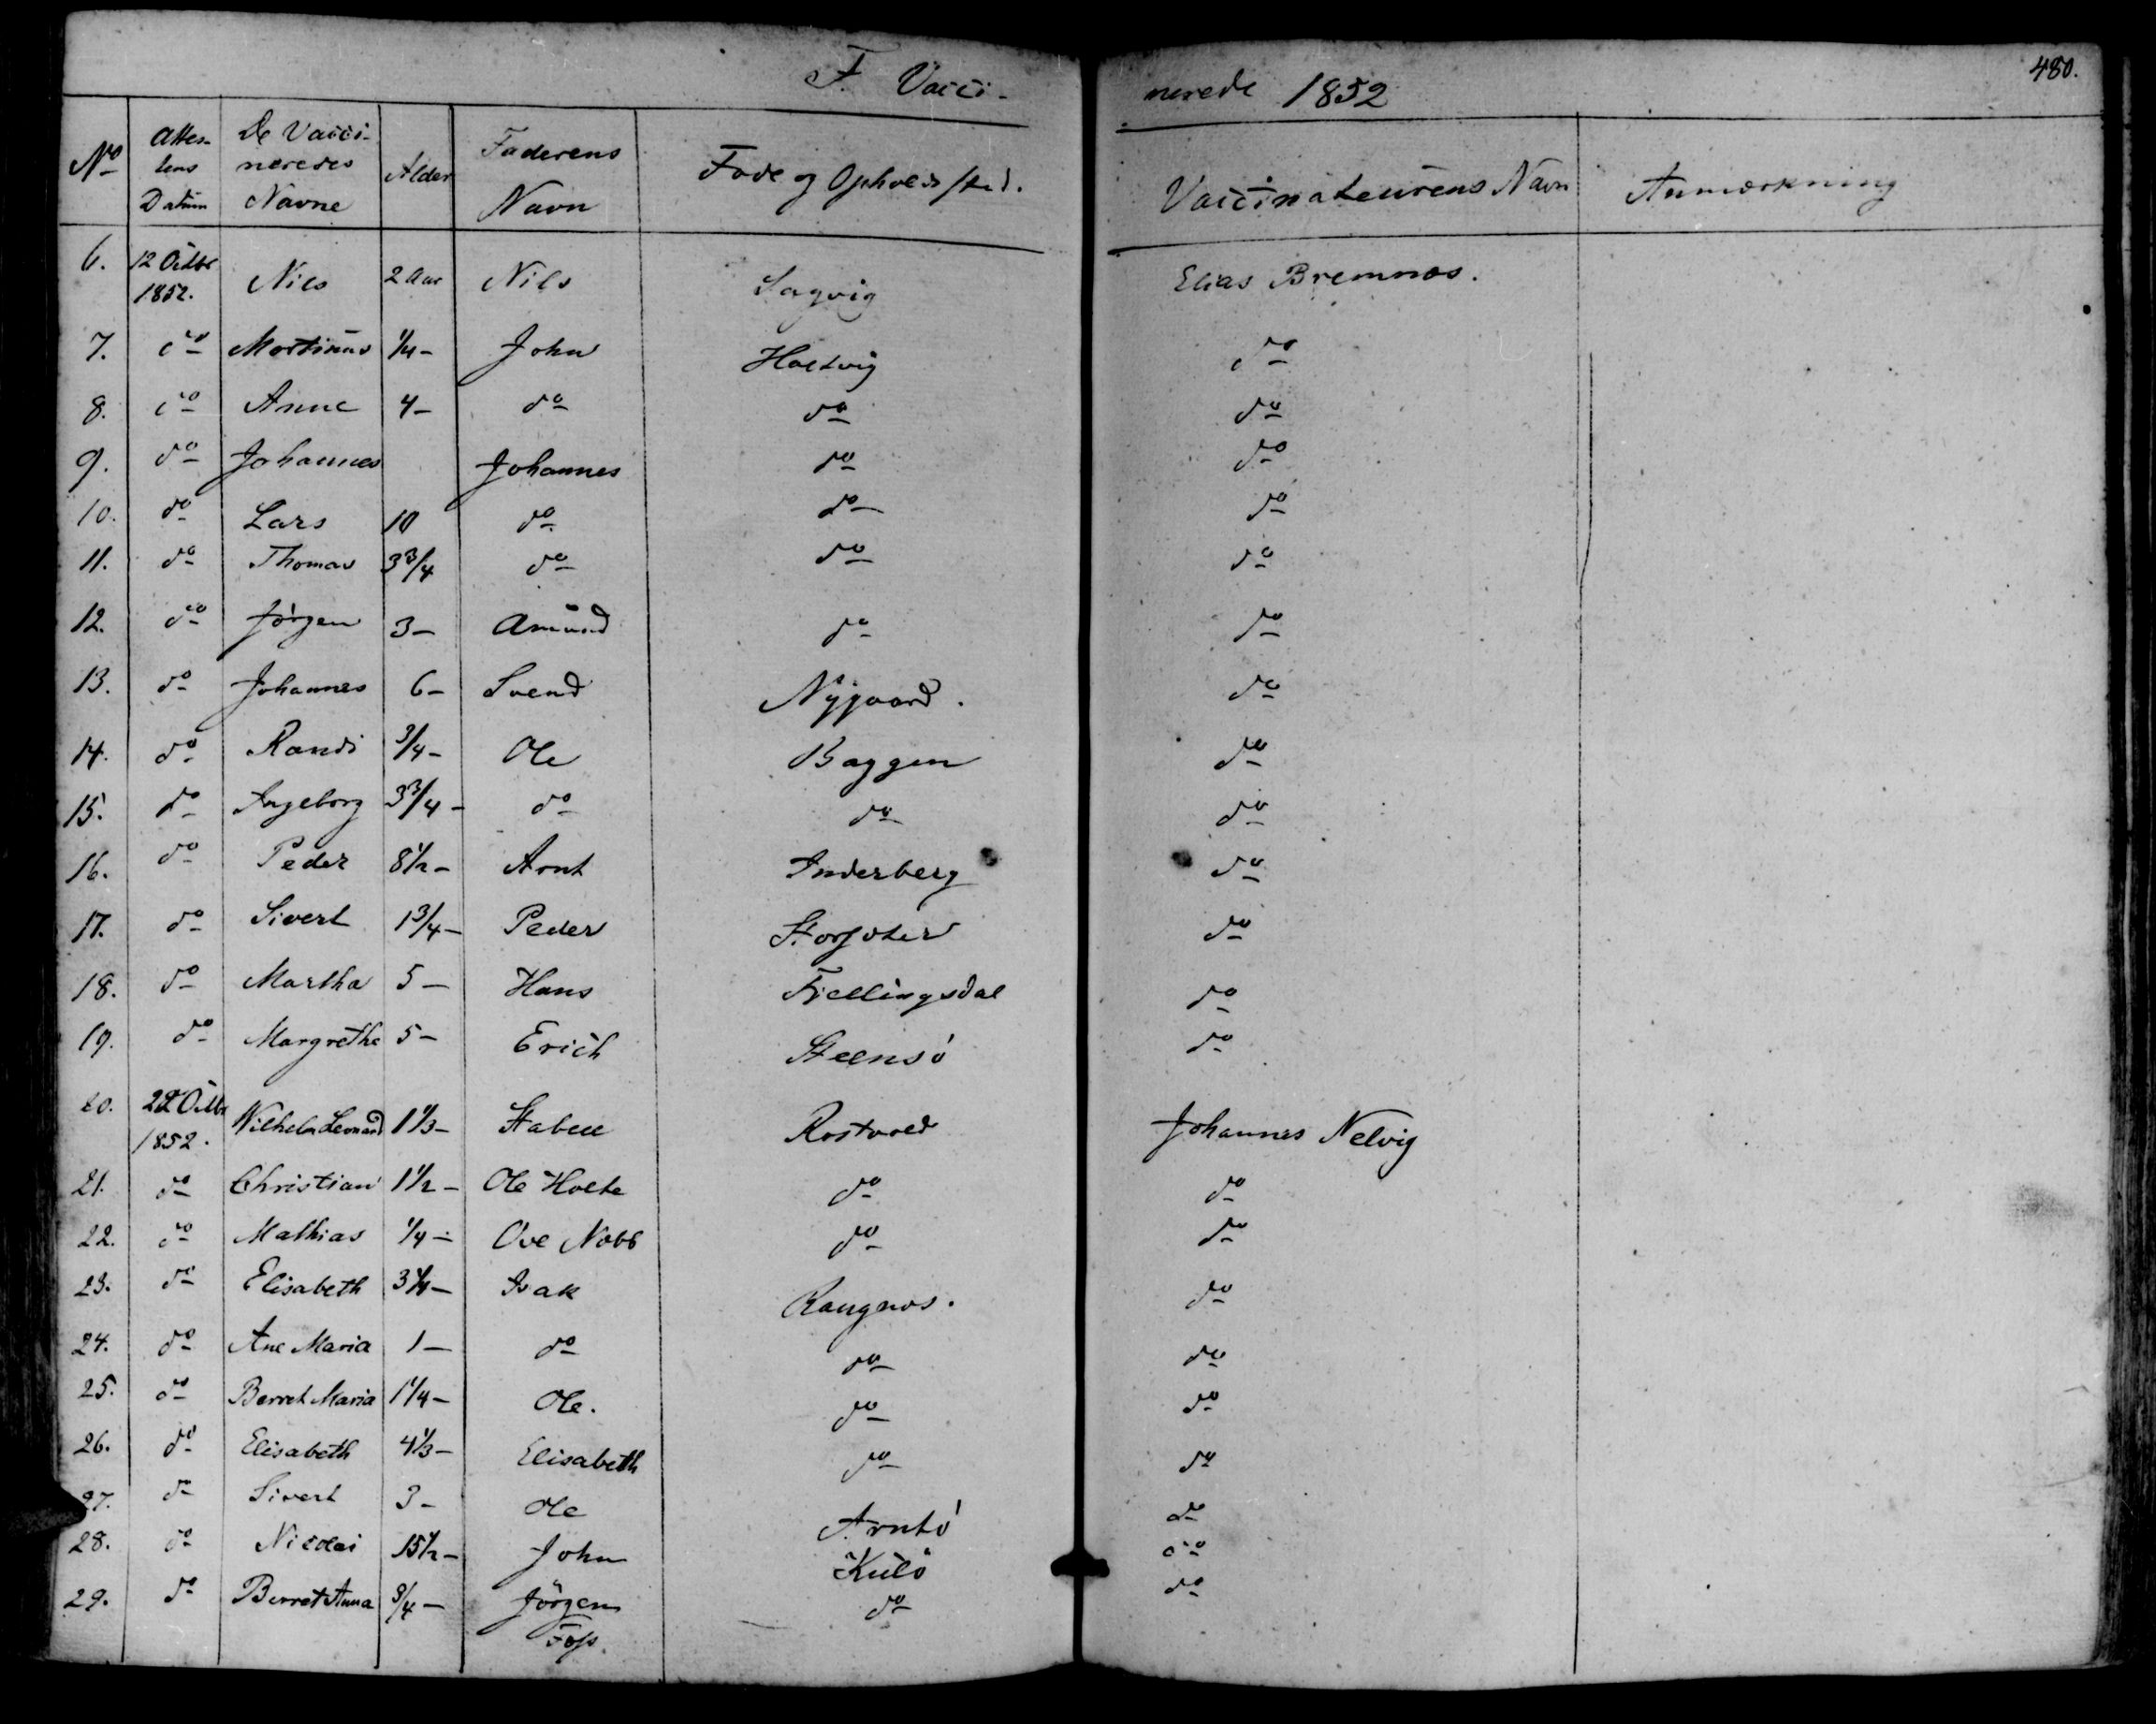 F. Vacci- nerede 1852 480.
No Attestens Datum De Vaccineredes Navne Alder Faderens Navn Føde og Opholdssted. Vaccinateurens Navn Anmærkning
6. 12 Octbr 1852. Nils 2 Aar Nils Sagvig Elias Bremnæs.
7. do Mortinus 1/4 - John Holtvig do
8. do Anne 4 - do do do
9. do Johannes Johannes do do
10. do Lars 10 do do do
11. do Thomas 3 3/4 do do do
12. do Jörgen 3 - Amund do do
13. do Johannes 6 - Svend Nÿgaard. do
14. do Randi 3/4 - Ole Baggen do
15. do Ingeborg 3 3/4 - do do do
16. do Peder 8 1/2 - Arnt Inderberg do
17. do Sivert 1 3/4 - Peder do
18. do Martha 5 - Hans Fiellingsdal do
19. do Margrethe 5 - Erich Steensö do
20. 22 Octbr 1852. Wilhelm Leonard 1 1/3 - Stabell Rostvold Johannes Nelvig
21. do Christian 1 1/2 - Ole Holte do do
22. do Mathias 1/4 - Ove do do
23. do Elisabeth 3 1/4 - Isak do
24. do Ane Maria 1 - do do do
25. do Berret Maria 1 1/4 - Ole. do do
26. do Elisabeth 4 1/3 - Elisabeth do do
27. do Sivert 3 - Ole Arntö do
28. do Nicolai 15 1/2 - John Kulö do
29. do Berret Anna 3/4 - Jörgen Foss. do do